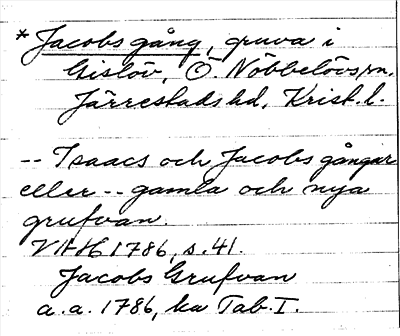 * Jacobs gång, gruva i
Gislöv, Ö. Nöbbelövs sn.
Järrestads hd, Krist. l.
-- Isaacs och Jacobs gångar
eller -- gamla och nya
grufvan.
VAH 1786, s. 41.
Jacobs Grufvan
a.a. 1786, ka Tab. I.